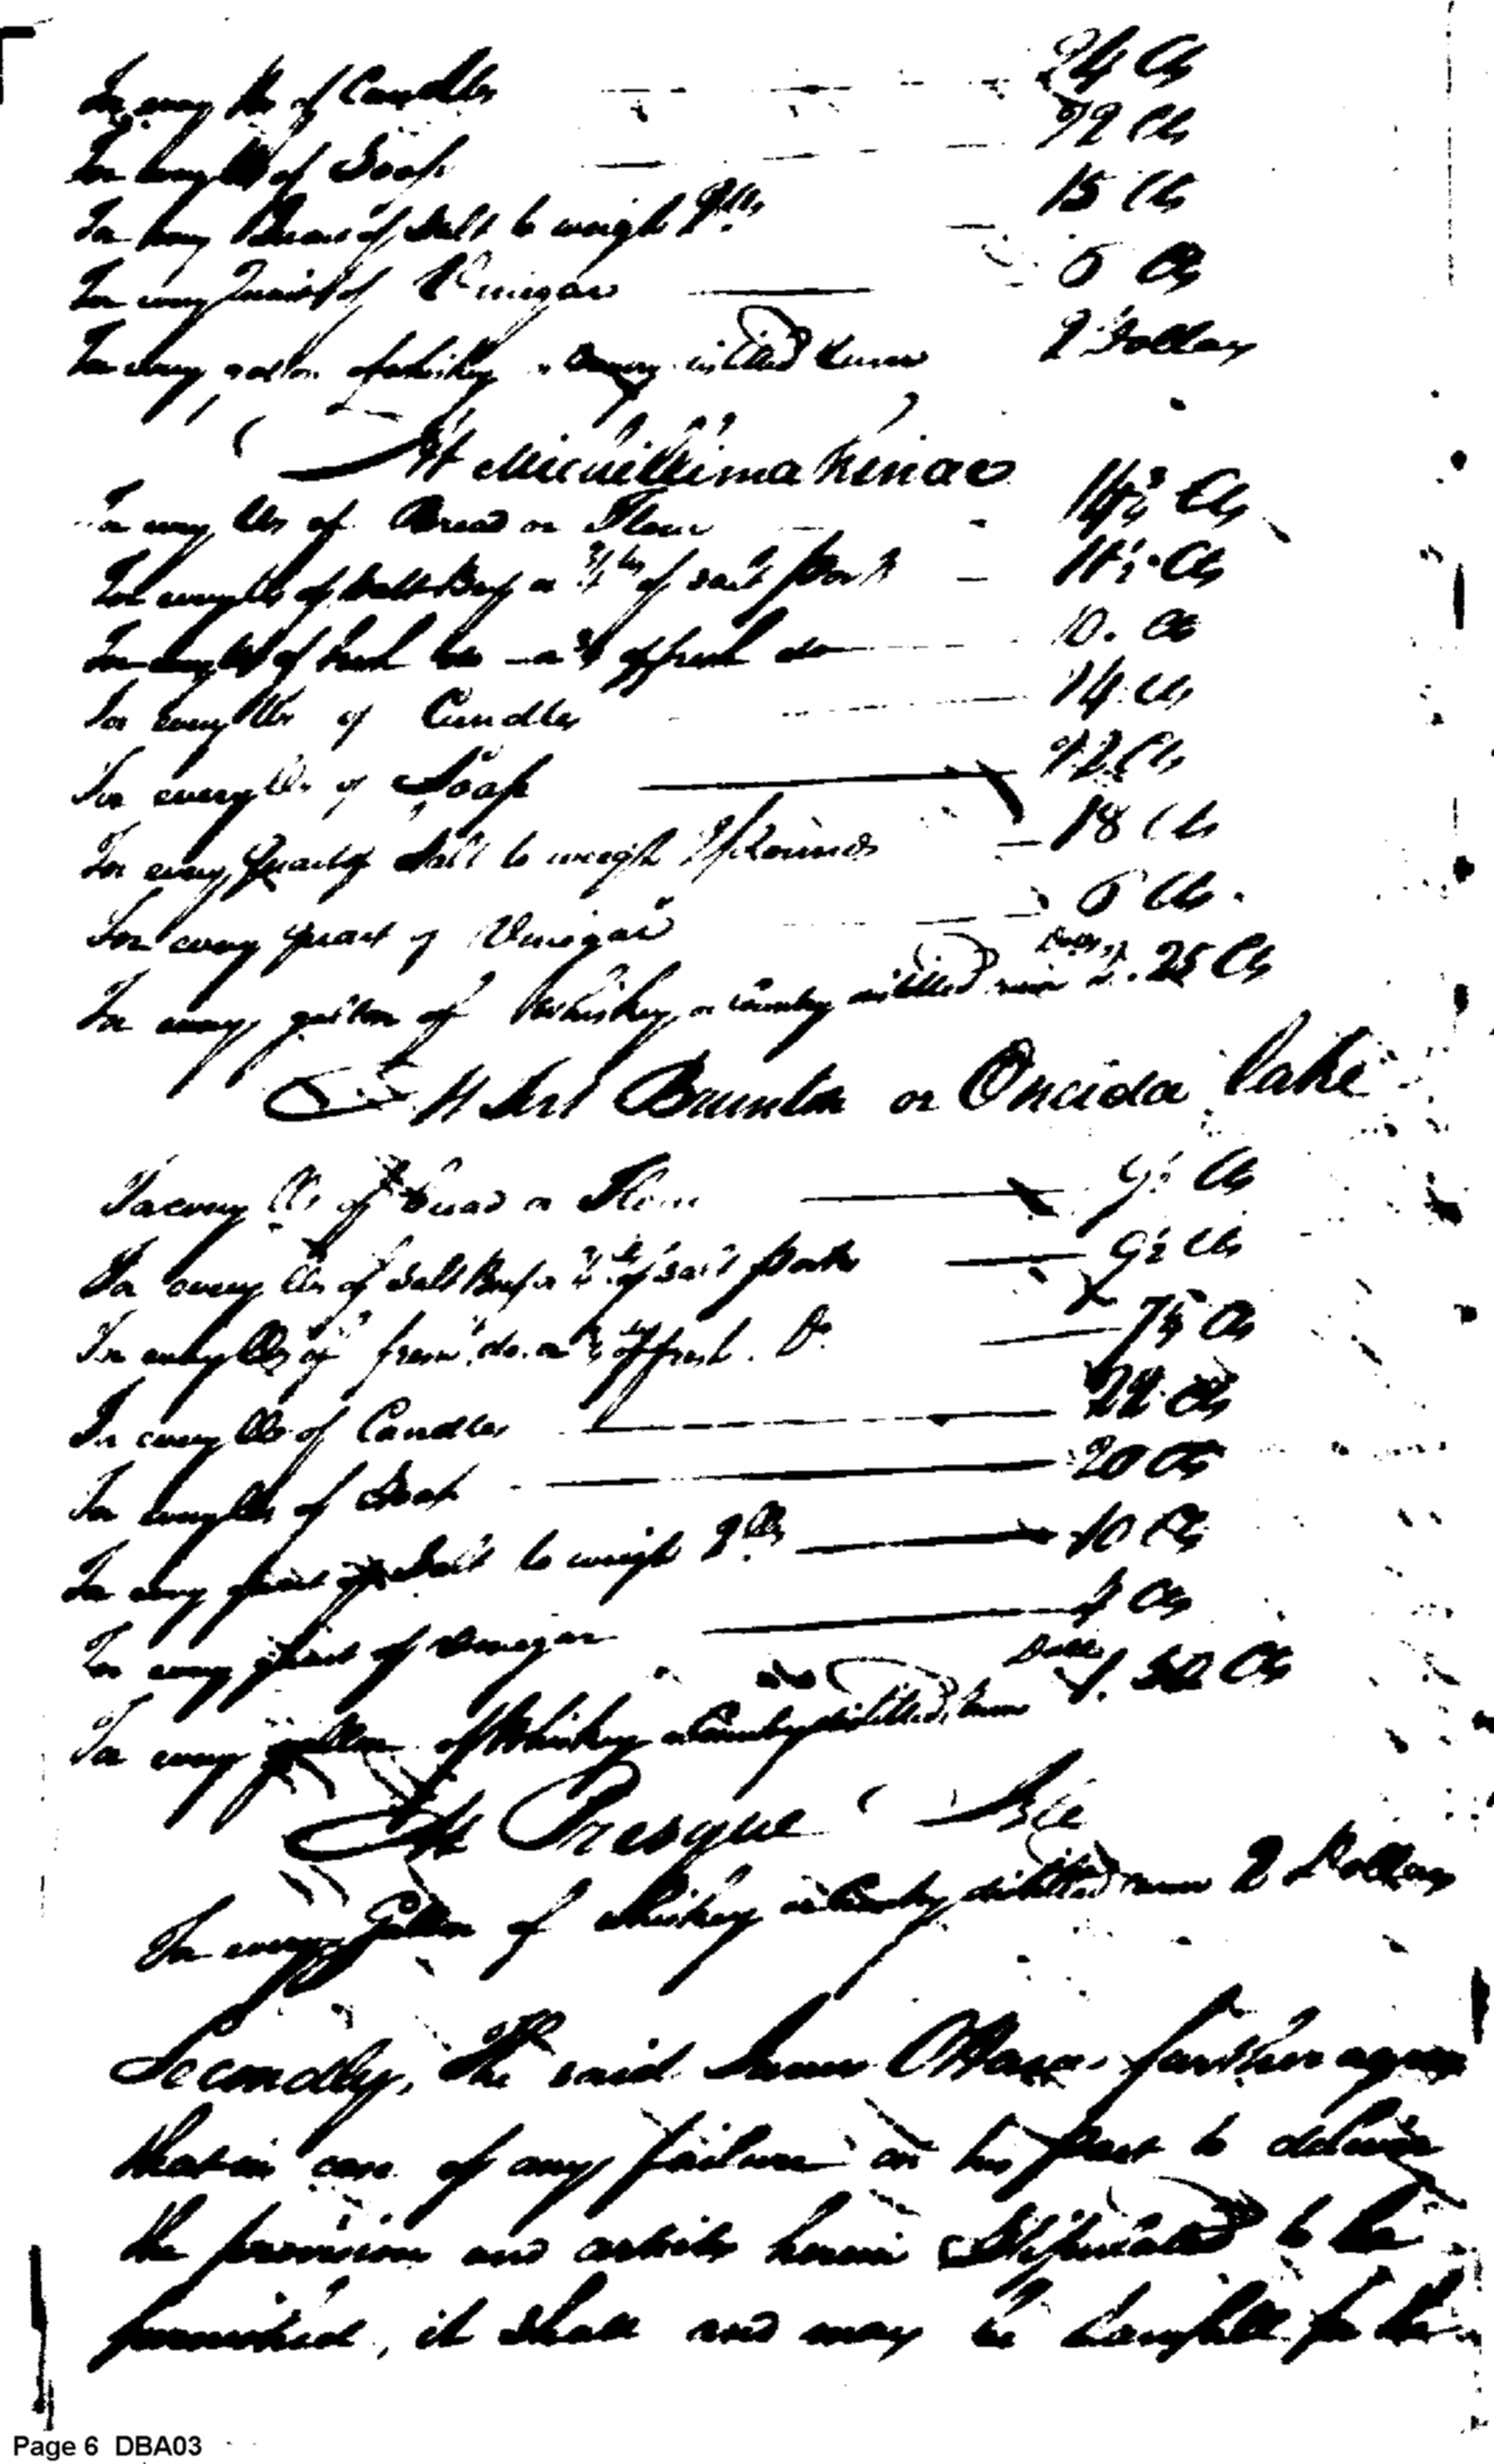 For every lb of Candles 24 Cts
For every lb of Soap 22 Cts
For every of Salt to weigh 2 lbs 15 Cts
For every Quart of Vinegar 6 Cts
For every gallon of whiskey or Country distilled rum 2 Dollars
At Michillimakinac
For every lb of Bread or Flour Cts
For every lb of Salt Beef or 3/4 lbs of salt pork Cts
For every lb of fresh do or of fresh do 10. Cts
For every lb of Candles Cts
For every lb of Soap 22 Cts
For every Quart of Salt to weigh 2 Pounds 18 Cts
For every quart of Vinegar 6 Cts.
For every gallon of Whiskey or Country distilled rum Dolls 2. 25 Cts
At Fort Brunton or Oneida lake
For every lb of Bread or Flour Cts
For every lb of Salt Beef or of salt pork Cts
For every lb of fresh do. or of fresh Do. Cts
For every lb of Candles Cts
For every lb of Soap 20 Cts
For every quart of Salt to weigh 2 lbs 10 Cts
For every quart of Vinegar Cts
For every gallon of Whiskey or Country distilled rum Dolls 1. 50 Cts
At Presque Isle
For every Gallon of Whiskey or Country distilled rum 2 Dollars
Secondly, The said James OHara further agrees
that in case of any failure on his part to deliver
the provisions and articles herein Stipulated to be
furnished, it shall and may be lawfull for the
Page 6 DBA03